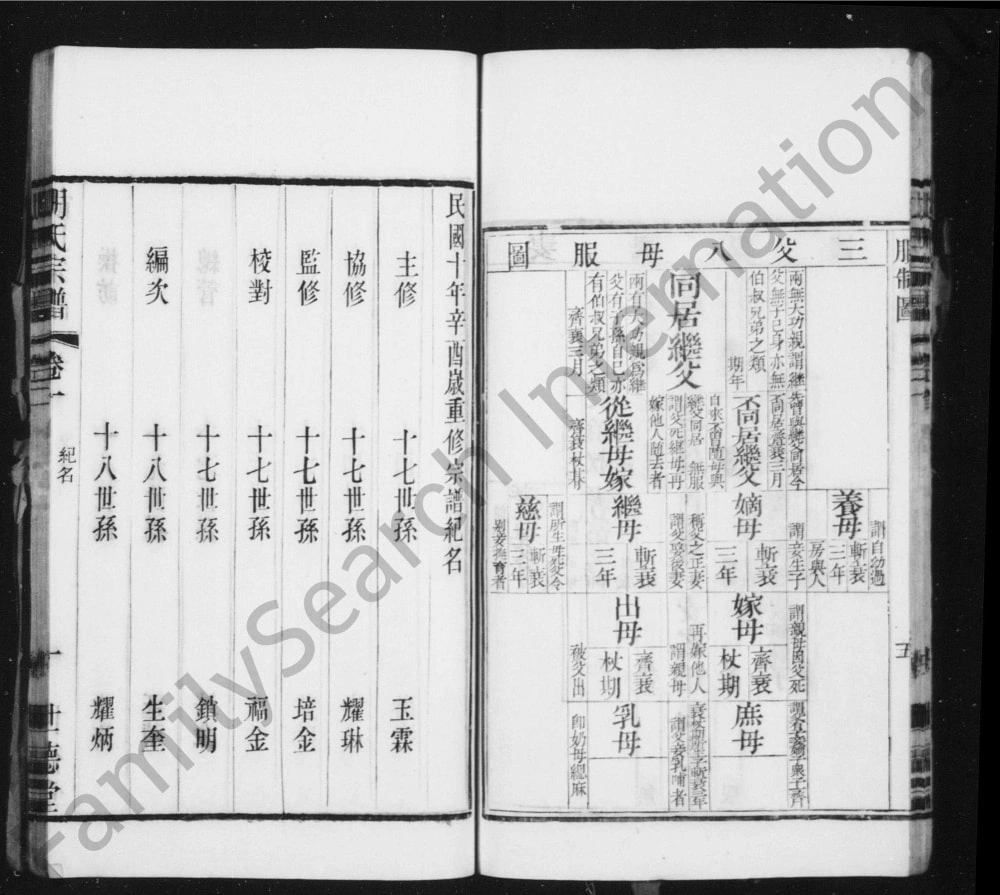 服制圖
五
三父八母服圖
兩無大功親謂繼
父無子己身亦無
伯叔兄弟之類
期年
同居繼父
兩有大功親為繼
父有子孫自己亦
有伯叔兄弟之類
齊衰三月
先曾與繼父同居今
不同居齊衰三月
不同居繼父
自來不曾隨母與
繼父同居 無服
謂父死繼母再
嫁他人隨去者
從繼母嫁
齊衰杖期
謂自幼過
房與人
養母
斬衰
三年
謂妾生子
稱父之正妻
嫡母
斬衰
三年
謂父娶後妻
繼母
斬衰
三年
謂所生母死父令
別妾撫育者
慈母
斬衰
三年
謂親母因父死
再嫁他人
嫁母
齊衰
杖期
謂親母
被父出
出母
齊衰
杖期
庶母
謂父妾乳哺者
即奶母緦麻
乳母
民國十年辛酉歲重修宗譜紀名
主修 十七世孫 玉霖
協修 十七世孫 耀琳
監修 十七世孫 培金
校對 十七世孫 福金
十七世孫 鎖明
編次 十八世孫 生奎
十八世孫 耀炳
胡氏宗譜 卷一 紀名 一 世德堂
FamilySearch International